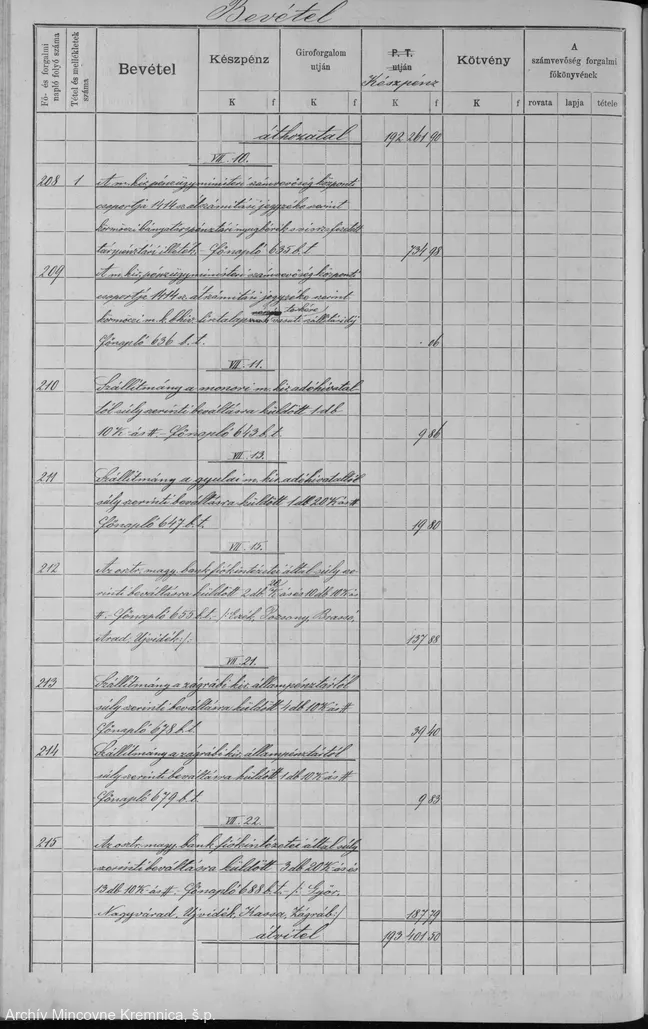 Bevétel
Fő- és forgalmi napló folyó száma
Tétel és mellékletek száma
Bevétel
Készpénz
Giroforgalom utján
P. T. utján
Készpénz
Kötvény
A számvevőség forgalmi főkönyvének
K f K f K f K f rovata lapja tétele
áthozatal 192 261 90
VII. 10.
208 1 A m. kir. pénzügyministeri számvevőség központi
csoportja 1414 sz. átszámitási jegyzéke szerint
körmöczi bányatárspénztári
tárpénztári illeték. - Főnapló 635 b. t. 734 98
209 A m. kir. pénzügyministeri számvevőség központi
csoportja 1414 sz. átszámitási jegyzéke szerint
körmöczi m. k.
Főnapló 636 b. t. . 06
VII. 11.
210 Szállitmány a monori m. kir. adóhivatal
tól súly szerinti beváltásra küldött 1 db
10 K ás #. Főnapló 643 b. t. 9 86
VII. 13.
211 Szállitmány a gyulai m. kir. adóhivataltól
súly szerinti beváltásra küldött 1 db 20 K ás #
Főnapló 647 b. t. 19 80
VII. 15.
212 Az osztr. magy. bank fiókintézetei által súly sze-
rinti beváltásra küldött 2 db 20 K ás és 10 db 10 K ás
#. Főnapló 655 b. t. - /: Pozsony, Brassó,
Arad, Ujvidék :/. 137 88
VII. 21.
213 Szállitmány a zágrábi kir. állampénztártól
súly szerinti beváltásra küldött 4 db 10 K ás #
Főnapló 678 b. t. 39 40
214 Szállitmány a zágrábi kir. állampénztártól
súly szerinti beváltásra küldött 1 db 10 K ás #
Főnapló 679 b. t. 9 83
VII. 22.
215 Az osztr. magy. bank fiókintézetei által súly
szerinti beváltásra küldött 3 db 20 K ás és
13 db 10 K ás #. Főnapló 688 b. t. - /: Győr,
Nagyvárad, Ujvidék, Kassa, Zágráb :/ 187 79
átvitel 193 401 50
Archív Mincovne Kremnica, š.p.